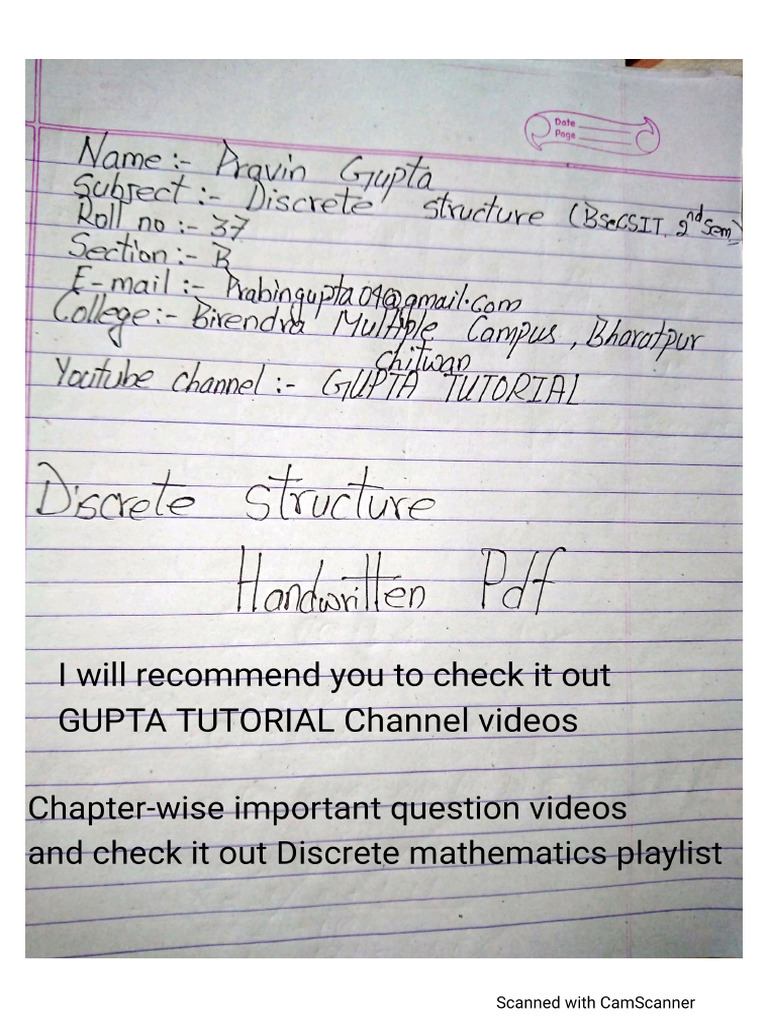 Date
Page
Name:- Pravin Gupta
Subject:- Discrete structure (BscCSIT, 2nd Sem)
Roll no:- 37
Section:- B
E-mail:- Prabingupta04@gmail.com
College:- Birendra Multiple Campus, Bharatpur
chitwan
Youtube channel:- GUPTA TUTORIAL
Discrete structure
Handwritten Pdf
I will recommend you to check it out
GUPTA TUTORIAL Channel videos
Chapter-wise important question videos
and check it out Discrete mathematics playlist
Scanned with CamScanner